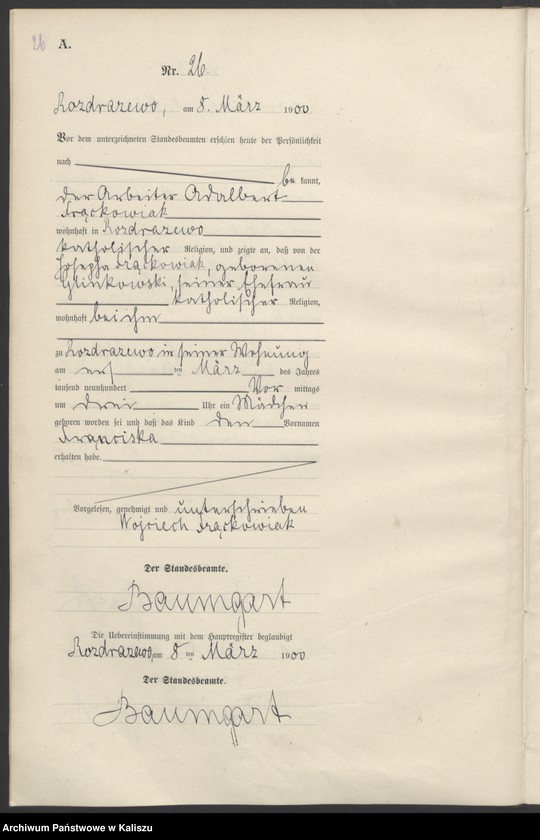 26 A.
Nr. 26.
Rozdrazewo, am 8. März 1900
Vor dem unterzeichneten Standesbeamten erschien heute der Persönlichkeit
nach
be kannt,
der Arbeiter Adalbert
Frąckowiak
wohnhaft in Rozdrazewo
katholischer Religion, und zeigte an, daß von der
Josepha Frąckowiak, geborenen
Glinkowski, seiner Ehefrau
katholischer Religion,
wohnhaft bei ihm
zu Rozdrazewo in seiner Wohnung
am ten März des Jahres
tausend neunhundert Vor mittags
um drei Uhr ein Mädchen
geboren worden sei und daß das Kind den Vornamen
Franciska
erhalten habe.
Vorgelesen, genehmigt und unterschrieben
Wojciech Frąckowiak
Der Standesbeamte.
Baumgart
Die Uebereinstimmung mit dem Hauptregister beglaubigt
Rozdrazewo, am 8 ten März 1900
Der Standesbeamte.
Baumgart
Archiwum Państwowe w Kaliszu